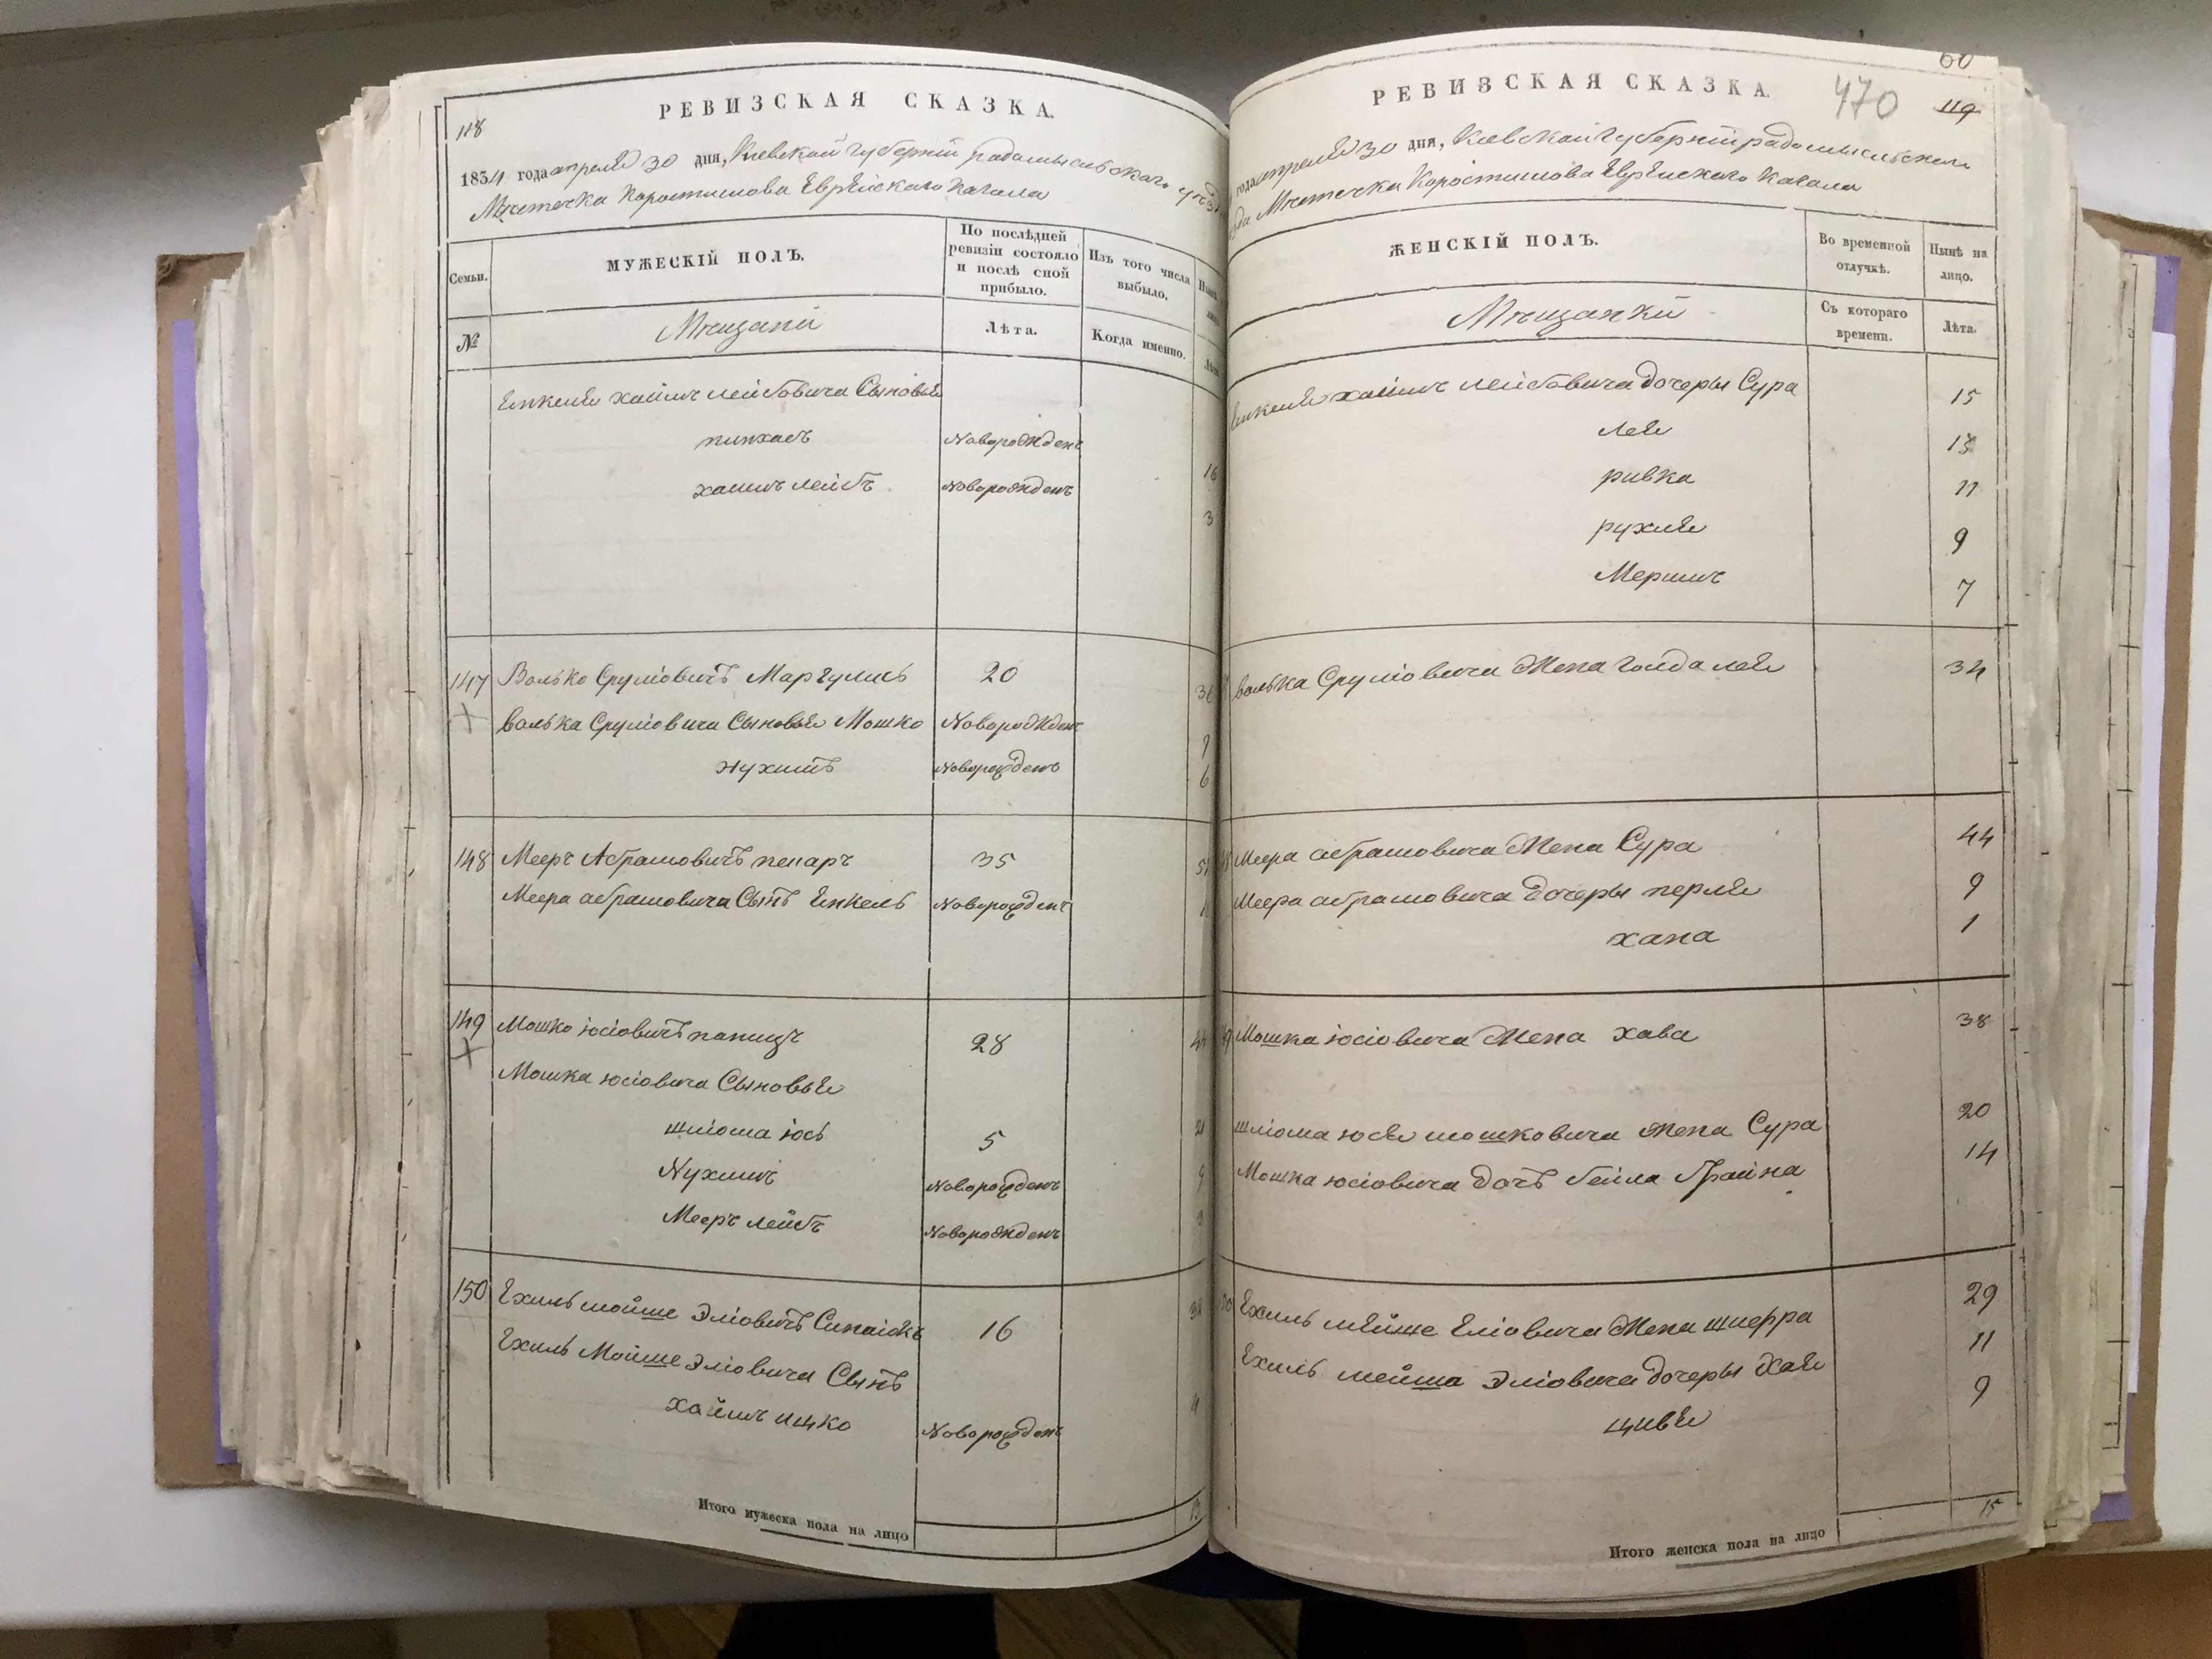 118
РЕВИЗСКАЯ СКАЗКА.
1834 года апреля 30 дня, Киевской Губерніи радомысльского уезда
Мѣстечка Коростишова Еврейского Кагала
Семьи.
МУЖЕСКІЙ ПОЛЪ.
По послѣдней ревизіи состояло и послѣ оной прибыло.
Изъ того числа выбыло.
№
Мещани
Лѣта.
Когда именно.
Лѣта
Енкеля хаимъ лейбовича Сыновья
пинхасъ Новорожденъ 16
хаимъ лейбъ Новорожденъ 3
147 Волько Сруліовичъ Маргулисъ 20 36
Волька Сруліовича Сыновья Мошко Новорожденъ 9
нухимъ Новорожденъ 6
148 Мееръ Абрамовичъ 35 51
Меера абрамовича Сынъ Енкель Новорожденъ
149 Мошко юсіовичъ 28 44
Мошка юсіовича Сыновья
шліома юсь 5 21
Нухимъ Новорожденъ 9
Мееръ лейбъ Новорожденъ 3
150 Ехиль мойше Эліовичъ 16 32
Ехиль Мойше Эліовича Сынъ
хаимъ ицко Новорожденъ 4
Итого мужеска пола на лицо 13
60
РЕВИЗСКАЯ СКАЗКА.
470
119
года апреля 30 дня, Киевской Губерніи радомысльского
уезда Мѣстечка Коростишова Еврейского Кагала
ЖЕНСКІЙ ПОЛЪ.
Во временной отлучкѣ.
Нынѣ на лицо.
Мещанки
Съ котораго времени.
Лѣта.
Енкеля хаимъ лейбовича дочеры Сура 15
лея 13
ривка 11
рухля 9
Меримъ 7
Волька Сруліовича Жена голда лея 34
Меера абрамовича Жена Сура 44
Меера абрамовича дочеры перля 9
хана 1
Мошка юсіовича Жена хава 38
шліома юся мошковича жена Сура 20
Мошка юсіовича дочь бейла Грайна 14
Ехиль мейше Еліовича Жена шифра 29
Ехиль мейша Эліовича дочеры хая 11
цивя 9
Итого женска пола на лицо 15